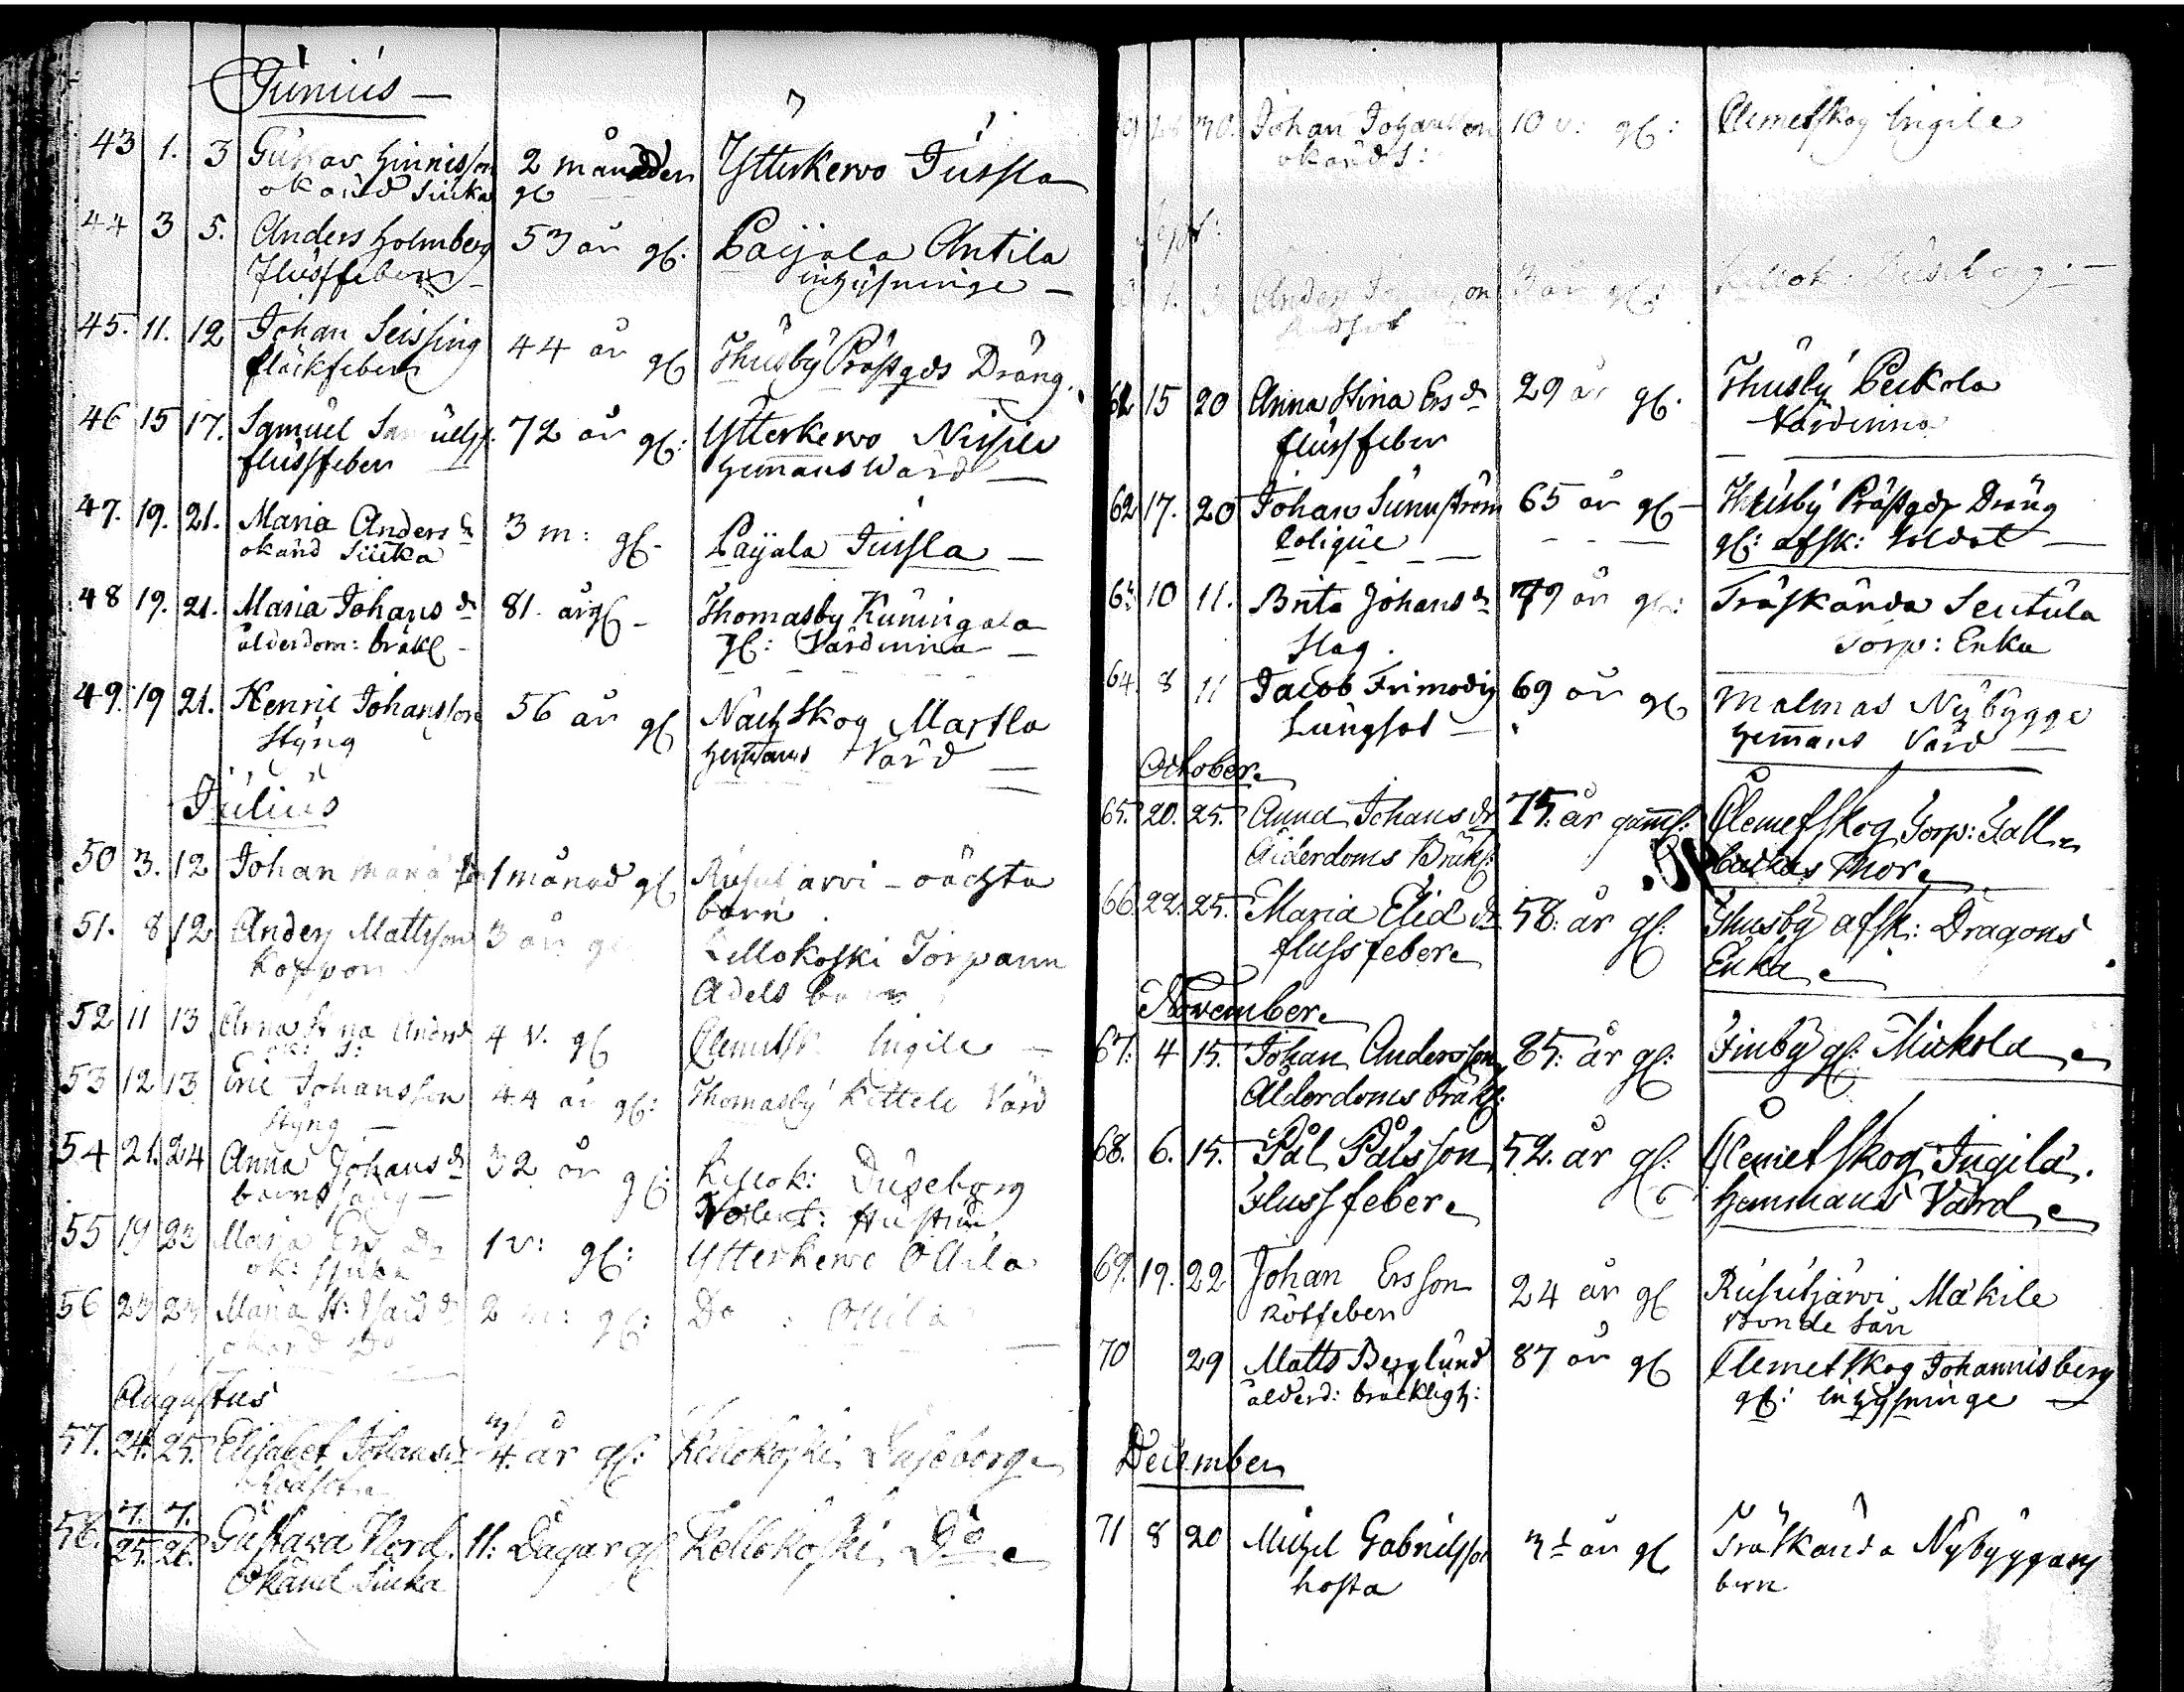 Junius
43 1. 3 Gustav Hinrisson 2 månader Ytterkervo Jussla
okänd siuka gl
44 3 5. Anders Holmberg 53 år gl: Paijala Antila
flussfeber inhysninge
45. 11. 12 Johan Seissing 44 år gl Thusby Prästgds Dräng.
fläckfeber
46 15 17. Samuel 72 år gl: Ytterkervo Nissile
flussfeber hemans Wärd
47. 19. 21. Maria Anders dr 3 m: gl. Paijala Jussla
okänd Siuka
48 19. 21. Maria Johans dr 81. år gl Thomasby Kuningala
ålderdom: bräkl gl: Värdinna
49. 19 21. Henric Johansson 56 år gl Nackskog Martla
styng hemans Värd
Julius
50 3. 12 Johan 1 månad gl Rusutjärvi oächta
barn
51. 8 12 Anders Mattsson 3 år Kellokoski Torparen
Koppor Adels
52 11 13 Anna 4 v. gl Clemetsk Ingile
53 12 13 Eric Johansson 44 år gl: Thomasby Kettele Värd
styng
54 21. 24 Anna Johans dr 32 år gl: Kellok:
barns hustru
55 19 23 Maria Ers Dr 1 v: gl: Ytterkervo Ollila
ok: siuka
56 23 23 Maria 2 m: gl: Do Ollila
okänd Do
Augustus
57. 24. 25. Elisabet Johans dr 4 år gl: Kellokoski
Rödsot
58. 25. 26. Gustava Nord. 11: Dagar gl Kellokoski, Do
Okänd Siuka
30. Johan Johansson 10 v: gl: Clemetskog Ingile
okänd s:
Sept:
1. 3 Anders 3 år gl: Kellok:
Rödsot
15 20 Anna Stina Ers dr 29 år gl. Thusby Peckola
flussfeber Värdinna
62 17. 20 Johan Sunnström 65 år gl Thusby Prästgds Dräng
Colique gl: afsk: Soldat
10 11. Brita Johans dr 79 år gl: Träskända Seutula
Slag. Torp: Enka
64. 8 11 Jacob Frimodig 69 år gl Malmas Nybygge
Lungsot hemans Värd
October
65. 20. 25. Anna Johans dr 75: år gaml: Clemetskog Torp:
Ålderdoms Bräkl: Mor
66. 22. 25. Maria Elid dr 58: år gl: Thusby afsk: Dragons
flussfeber Enka
November
67. 4 15. Johan Andersson 85: år gl: Finby gl: Mickola
Ålderdoms bräkl:
68. 6. 15. Pål Pålsson 52. år gl: Clemetskog Ingila.
Flussfeber Hemmans Värd
69. 19. 22 Johan Ersson 24 år gl Rusutjärvi Mäkile
Rötfeber Bonde Son
70 29 Matts Berglund 87 år gl Clemetskog Johannisberg
ålderd: bräckligh: gl: inhysninge
December
71 8 20 Michel Gabrielsson 3 ½ år gl Träskända Nybyggars
hosta barn